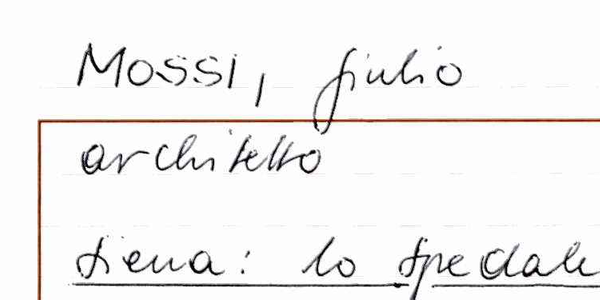 Mossi, Giulio
architetto
Siena: lo Spedale